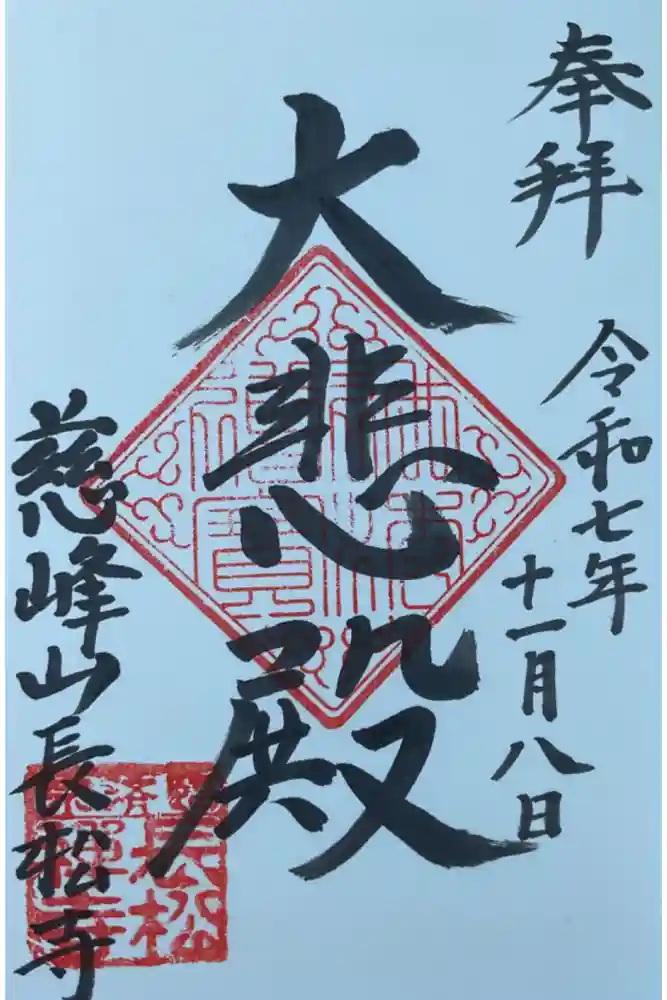 奉拝
令和七年
十一月八日
大悲殿
慈峰山長松寺